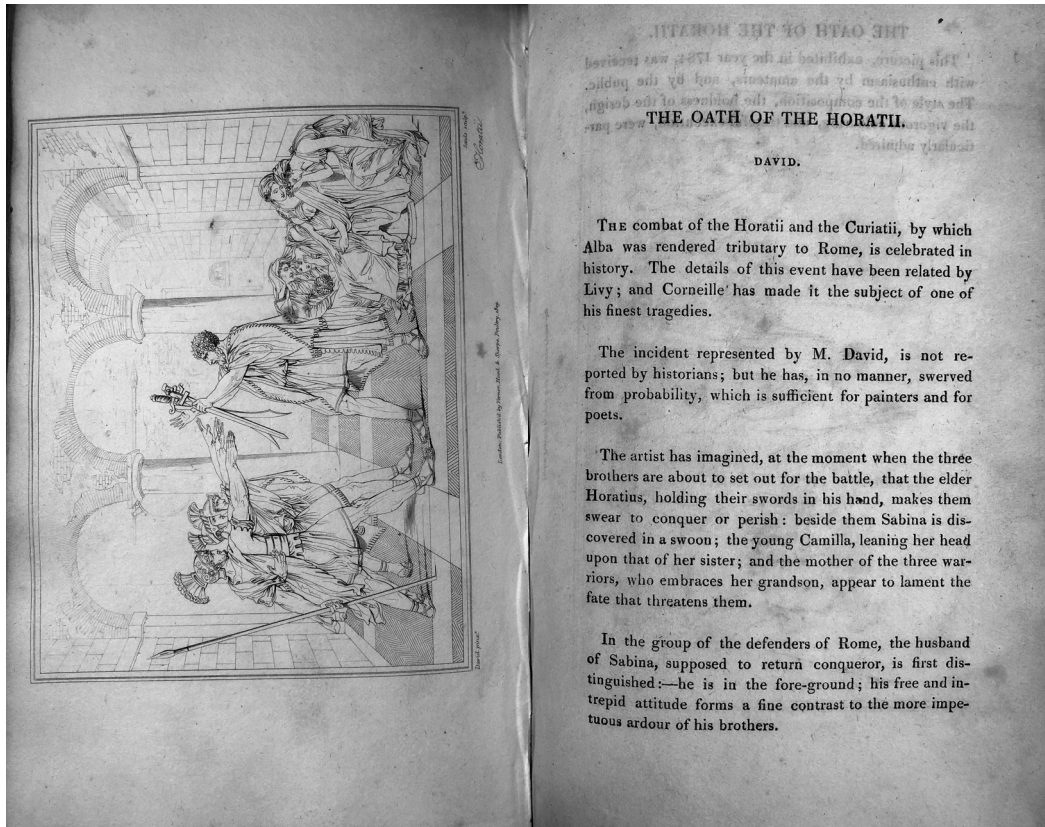 David pinxt
London. Published by Vernor Hood & Sharpe Poultry
THE OATH OF THE HORATII.
DAVID.
THE combat of the Horatii and the Curiatii, by which
Alba was rendered tributary to Rome, is celebrated in
history. The details of this event have been related by
Livy; and Corneille has made it the subject of one of
his finest tragedies.
The incident represented by M. David, is not re-
ported by historians; but he has, in no manner, swerved
from probability, which is sufficient for painters and for
poets.
The artist has imagined, at the moment when the three
brothers are about to set out for the battle, that the elder
Horatius, holding their swords in his hand, makes them
swear to conquer or perish: beside them Sabina is dis-
covered in a swoon; the young Camilla, leaning her head
upon that of her sister; and the mother of the three war-
riors, who embraces her grandson, appear to lament the
fate that threatens them.
In the group of the defenders of Rome, the husband
of Sabina, supposed to return conqueror, is first dis-
tinguished:—he is in the fore-ground; his free and in-
trepid attitude forms a fine contrast to the more impe-
tuous ardour of his brothers.